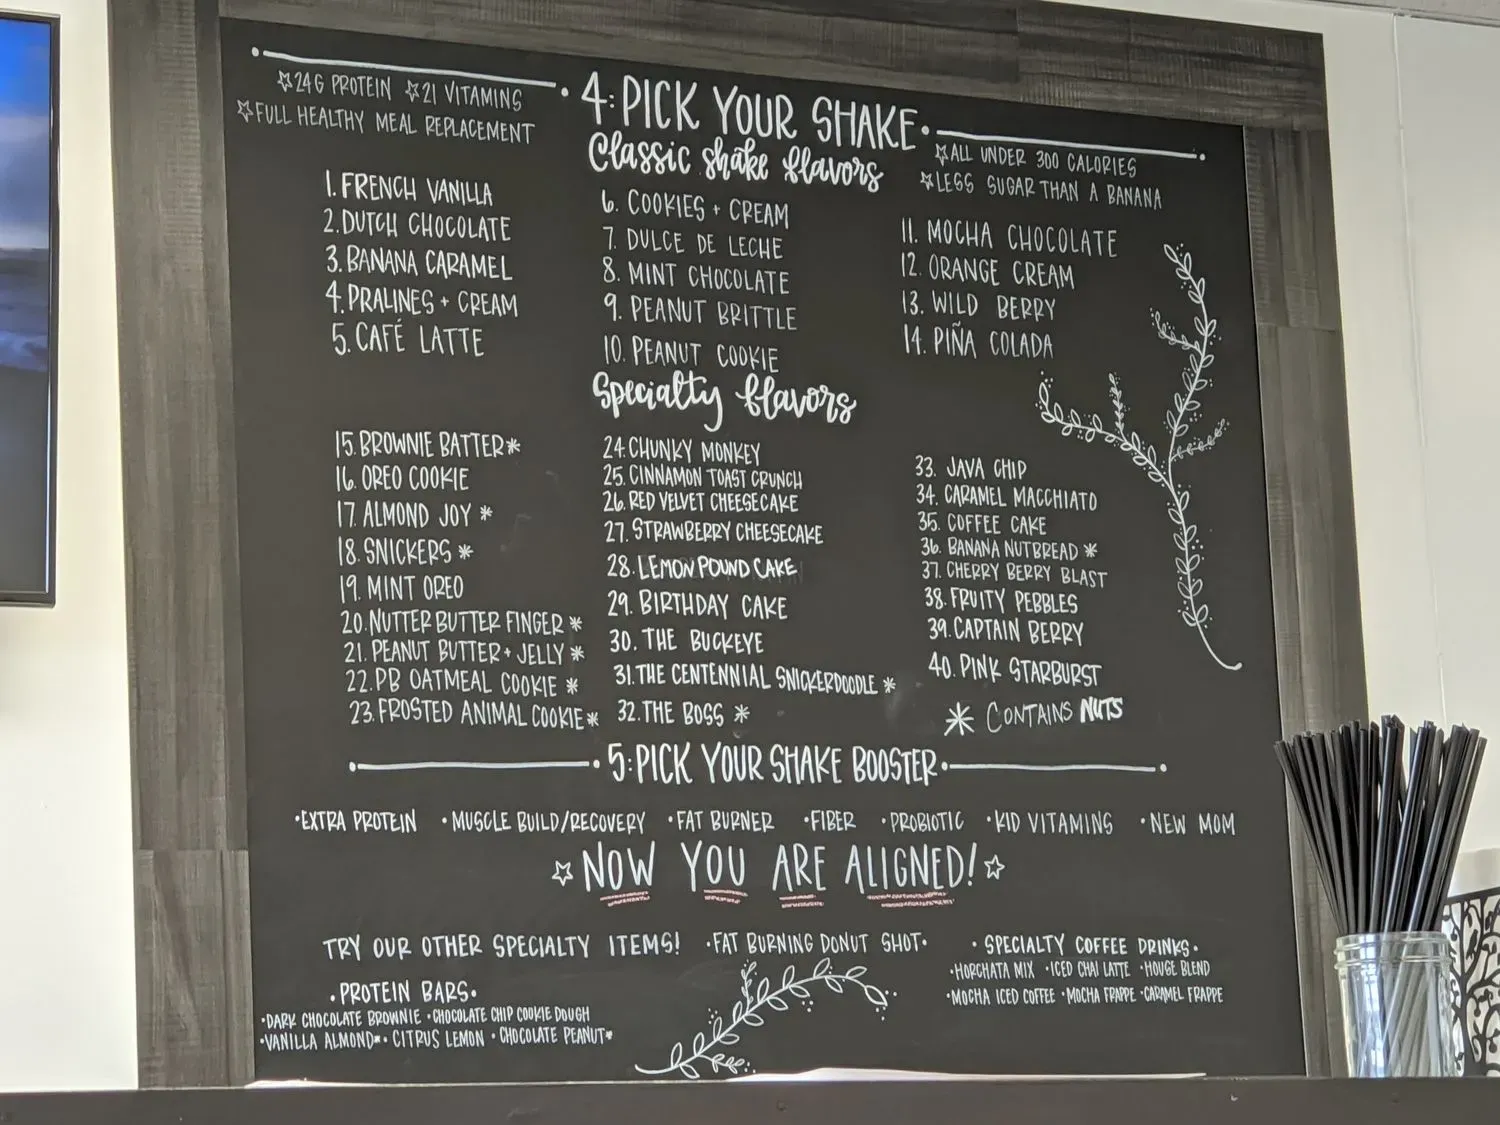 ☆24G PROTEIN ☆21 VITAMINS
☆FULL HEALTHY MEAL REPLACEMENT
4: PICK YOUR SHAKE
Classic shake flavors
☆ALL UNDER 300 CALORIES
☆LESS SUGAR THAN A BANANA
1. FRENCH VANILLA
2. DUTCH CHOCOLATE
3. BANANA CARAMEL
4. PRALINES + CREAM
5. CAFÉ LATTE
6. COOKIES + CREAM
7. DULCE DE LECHE
8. MINT CHOCOLATE
9. PEANUT BRITTLE
10. PEANUT COOKIE
11. MOCHA CHOCOLATE
12. ORANGE CREAM
13. WILD BERRY
14. PIÑA COLADA
Specialty flavors
15. BROWNIE BATTER*
16. OREO COOKIE
17. ALMOND JOY *
18. SNICKERS *
19. MINT OREO
20. NUTTER BUTTER FINGER *
21. PEANUT BUTTER + JELLY *
22. PB OATMEAL COOKIE *
23. FROSTED ANIMAL COOKIE*
24. CHUNKY MONKEY
25. CINNAMON TOAST CRUNCH
26. RED VELVET CHEESECAKE
27. STRAWBERRY CHEESECAKE
28. LEMON POUND CAKE
29. BIRTHDAY CAKE
30. THE BUCKEYE
31. THE CENTENNIAL SNICKERDOODLE *
32. THE BOSS *
33. JAVA CHIP
34. CARAMEL MACCHIATO
35. COFFEE CAKE
36. BANANA NUTBREAD *
37. CHERRY BERRY BLAST
38. FRUITY PEBBLES
39. CAPTAIN BERRY
40. PINK STARBURST
* CONTAINS NUTS
5: PICK YOUR SHAKE BOOSTER
•EXTRA PROTEIN •MUSCLE BUILD/RECOVERY •FAT BURNER •FIBER •PROBIOTIC •KID VITAMINS •NEW MOM
☆NOW YOU ARE ALIGNED!☆
TRY OUR OTHER SPECIALTY ITEMS! •FAT BURNING DONUT SHOT•
•PROTEIN BARS•
•DARK CHOCOLATE BROWNIE •CHOCOLATE CHIP COOKIE DOUGH
•VANILLA ALMOND* •CITRUS LEMON •CHOCOLATE PEANUT*
•SPECIALTY COFFEE DRINKS•
•HORCHATA MIX •ICED CHAI LATTE •HOUSE BLEND
•MOCHA ICED COFFEE •MOCHA FRAPPE •CARAMEL FRAPPE